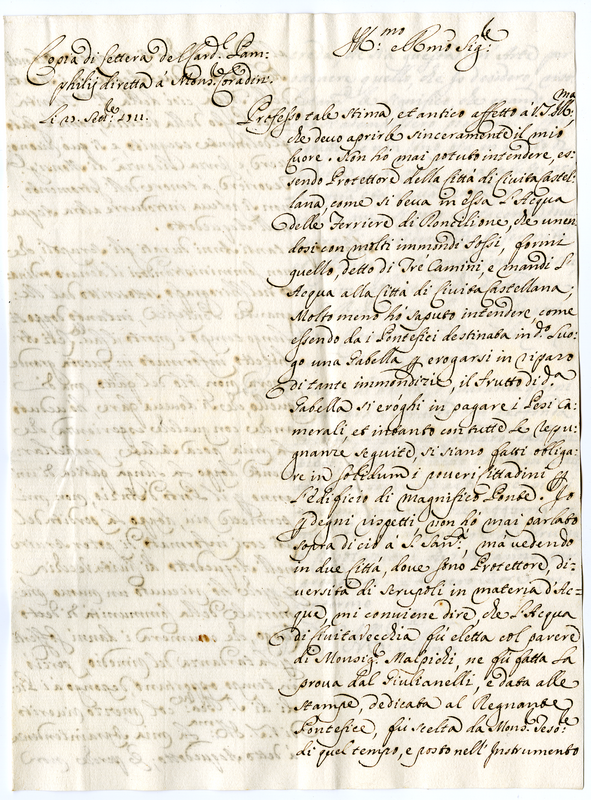 Copia di lettera del Card.l Pam=
philij diretta à Mons.r Coradin.
li 23. Sett.e 1711.
Ill.mo e R.mo Sig.re
Professo tale stima, et antico affetto à V.S. Ill.ma
che devo aprirle sinceramente il mio
Cuore. Non hò mai potuto intendere, es=
sendo Protettore della Città di Civita Castel=
lana, come si beva in essa l'Acqua
delle Ferriere di Ronciglione, che unen
dosi con molti immondi Fossi, formi
quello, detto di Trè Camini, e mandi l'
Acqua alla Città di Civita Castellana;
Molto meno hò saputo intendere, come
essendo da i Pontefici destinata in d.o Luo=
go una Gabella p erogarsi in riparo
di tante immondizie, il frutto di d.a
Gabella si eroghi in pagare i Pesi Ca=
merali, et intanto con tutte le repu=
gnanze seguite, si siano fatti obliga=
re in solidum i poveri Cittadini p
l'edificio di magnifico Ponte. Io
p degni rispetti non hò mai parlato
sopra di ciò à S. San.tà, mà vedendo
in due Città, dove sono Protettore, di=
versità di scrupoli in materia d'Ac=
que, mi conviene dire, che l'Acqua
di Civitavecchia fù eletta col parere
di Monsig.r Malpichi, ne fù fatta la
prova dal Giulianelli, e data alle
stampe, dedicata al Regnante
Pontefice, fù scelta da Mons.r Teso.re
di quel tempo, e posto nell'Instrumento